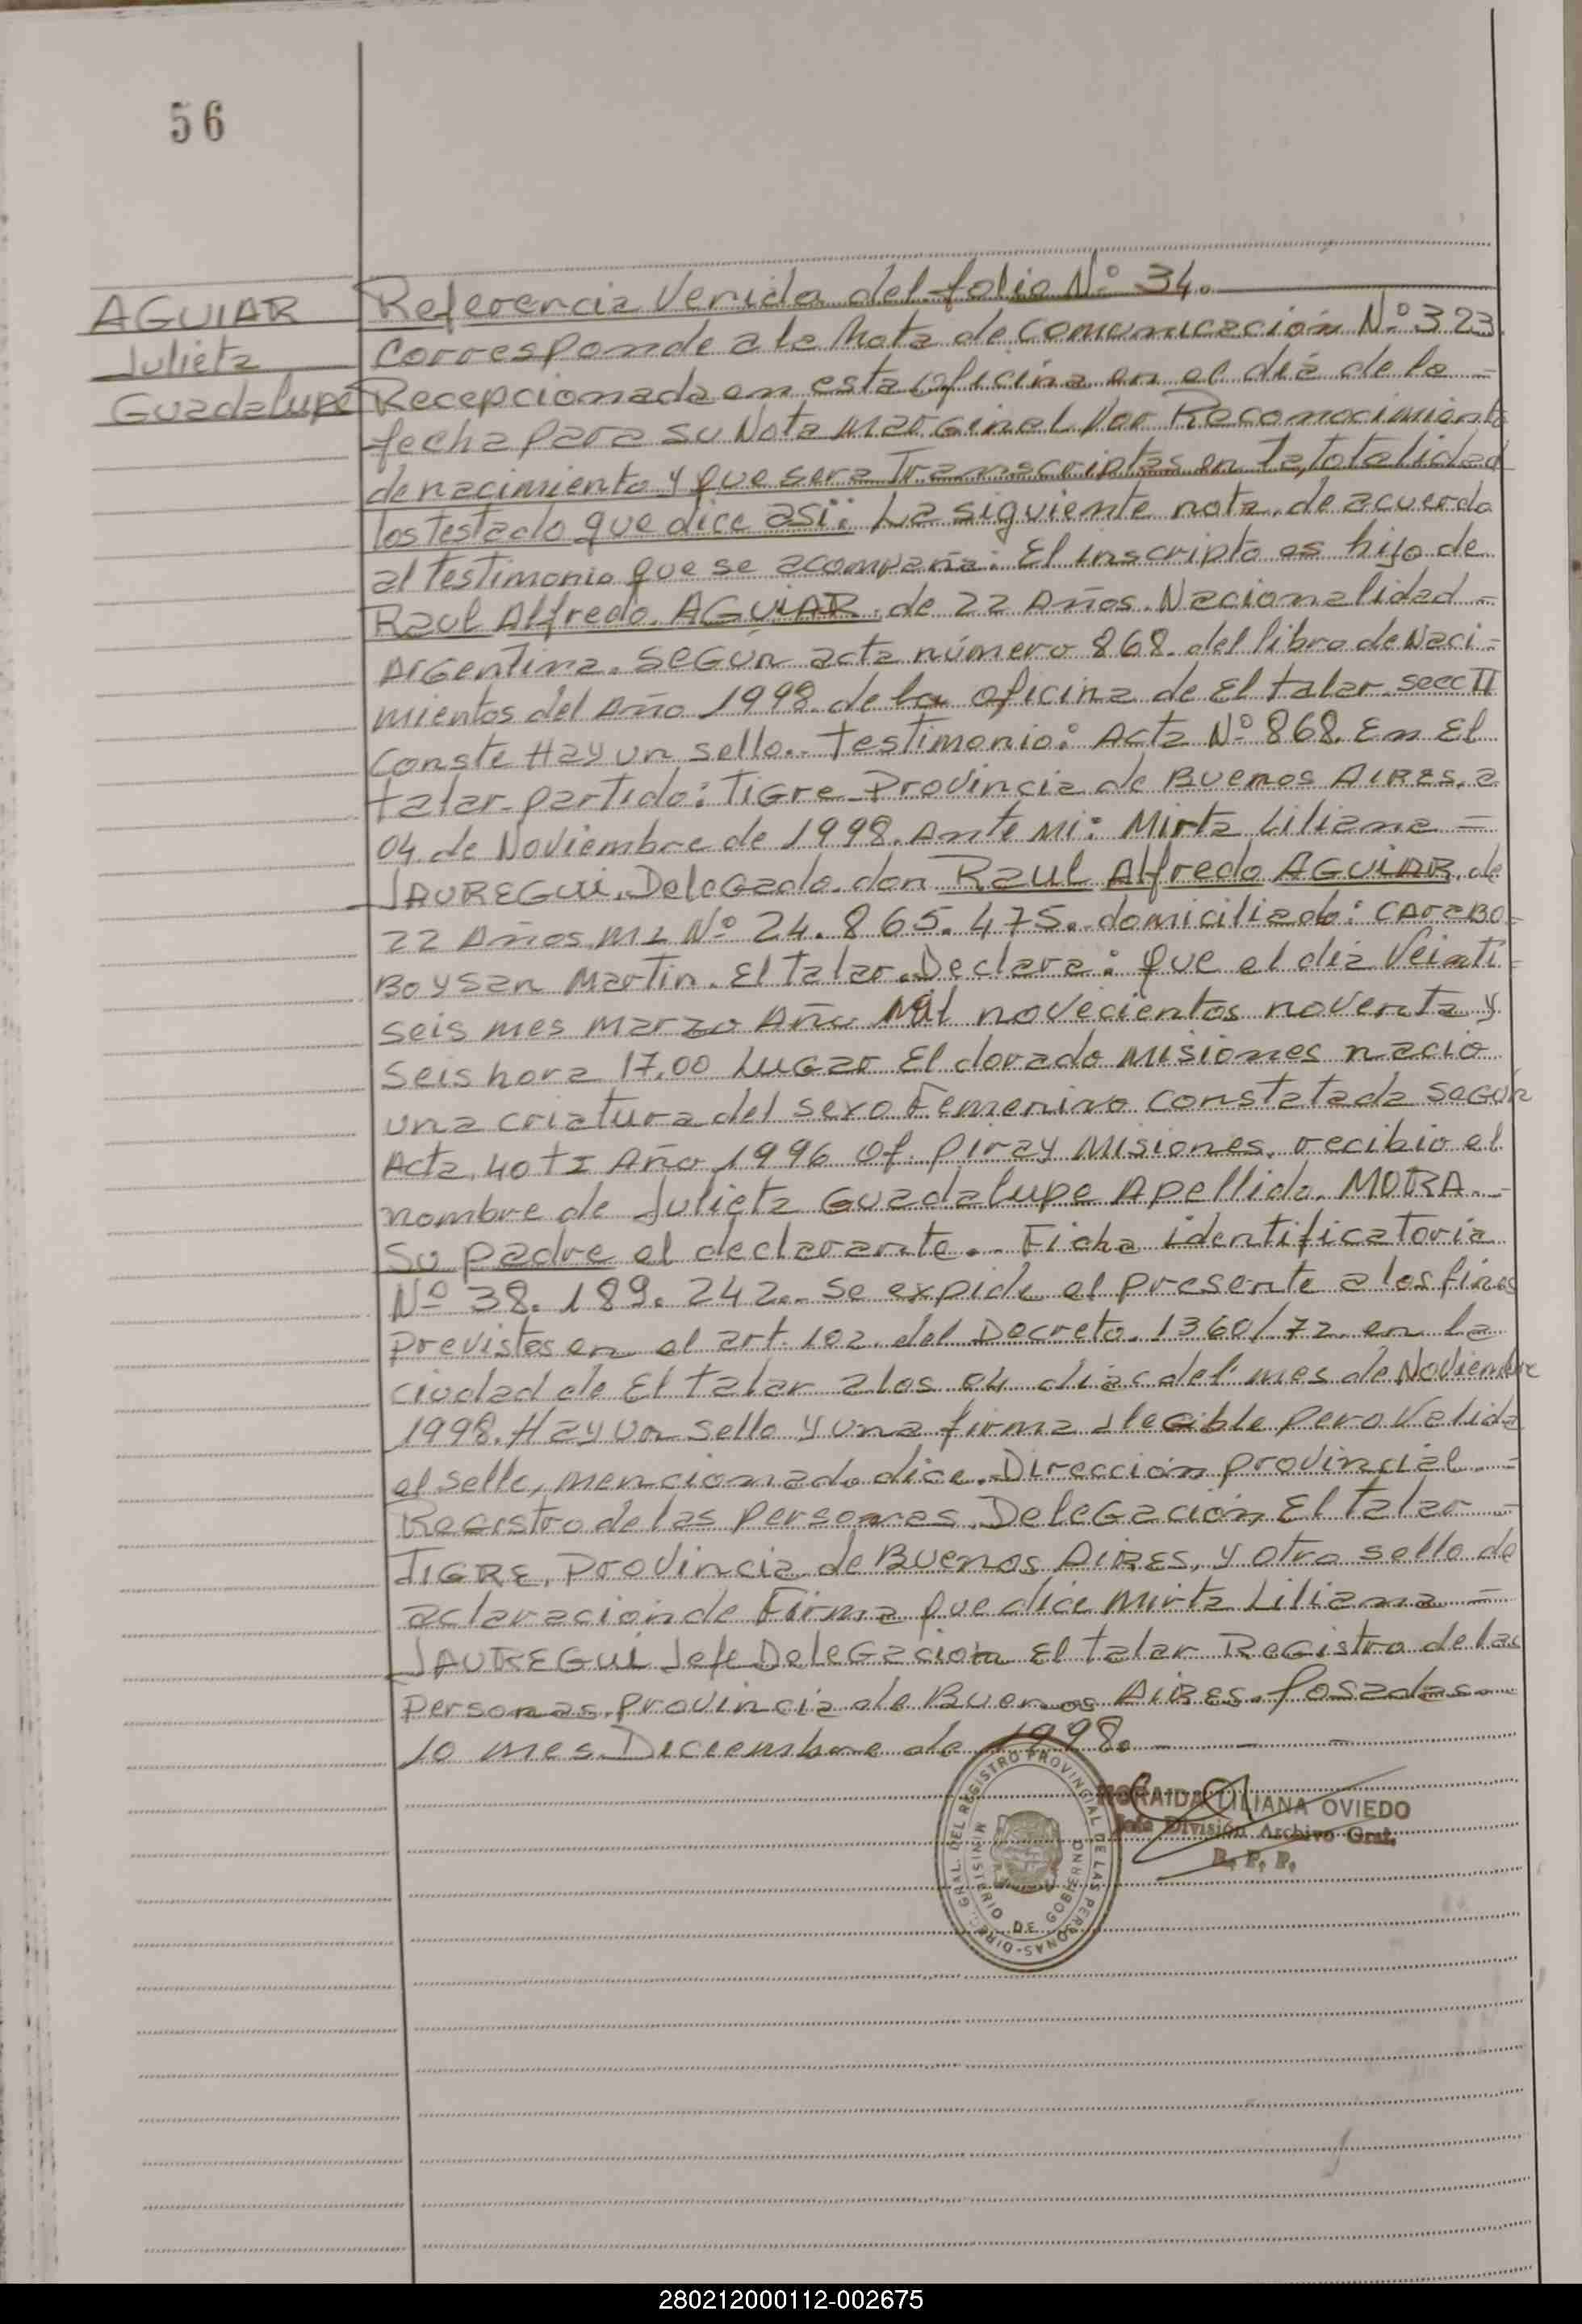 56
AGUIAR
Julieta
Guadalupe
Referencia Venida del folio Nº 34.
Corresponde a la Nota de comunicación Nº 323
Recepcionada en esta oficina en el día de la =
fecha para su Nota marginal por Reconocimiento
de nacimiento y que sera Transcriptas en la totalidad
los Testado que dice así: La siguiente nota, de acuerdo
al testimonio que se acompaña: El inscripto es hijo de
Raul Alfredo. AGUIAR. de 22 Años. Nacionalidad =
Argentina. SEGÚN acta número 868. del libro de Naci=
mientos del Año 1998. de la oficina de El talar secc II
Conste Hay un sello.. Testimonio: Acta Nº 868. En El
talar. partido: TIGre Provincia de BUENOS AIRES. a
04 de Noviembre de 1998. Ante mi: Mirta Liliana =
JAUREGUI. DeleGado. don Raul Alfredo AGUIAR. de
22 Años MI Nº 24.865.475. domiciliado: CAraBo=
Bo y San Martin. El Talar. Declara: que el día Veinti=
seis mes marzo Año Mil novecientos noventa y
Seis hora 17.00 LUGar El dorado Misiones nació
una criatura del sexo Femenino constatada SeGún
Acta. 40 tI Año 1996 Of. Piray Misiones. recibio el
nombre de Julieta Guadalupe Apellido. MOIRA.-
Su padre el declarante.. Ficha identificatoria
Nº 38.189.242.. se expide el presente a los fines
previstos en el art. 102. del Decreto. 1360/72 en la
ciudad de El talar a los 04 días del mes de Noviembre
1998. Hay un sello y una firma ilegible pero Valida
el sello, mencionado dice. Dirección provincial =
Registro de las Personas. DeleGación El talar =
TIGRE. Provincia de BUENOS AIRES. y otro sello de
aclaración de Firma que dice Mirta Liliana =
JAUREGUI Jefe DeleGación El talar Registro de las
Personas. Provincia de Buenos AIRES. Posadas.
10 mes Diciembre de 1998. - - -
DIREC. GRAL. DEL REGISTRO PROVINCIAL DE LAS PERSONAS
MINISTERIO DE GOBIERNO
LILIANA OVIEDO
Jefe División Archivo Gral.
R. P. P.
280212000112-002675